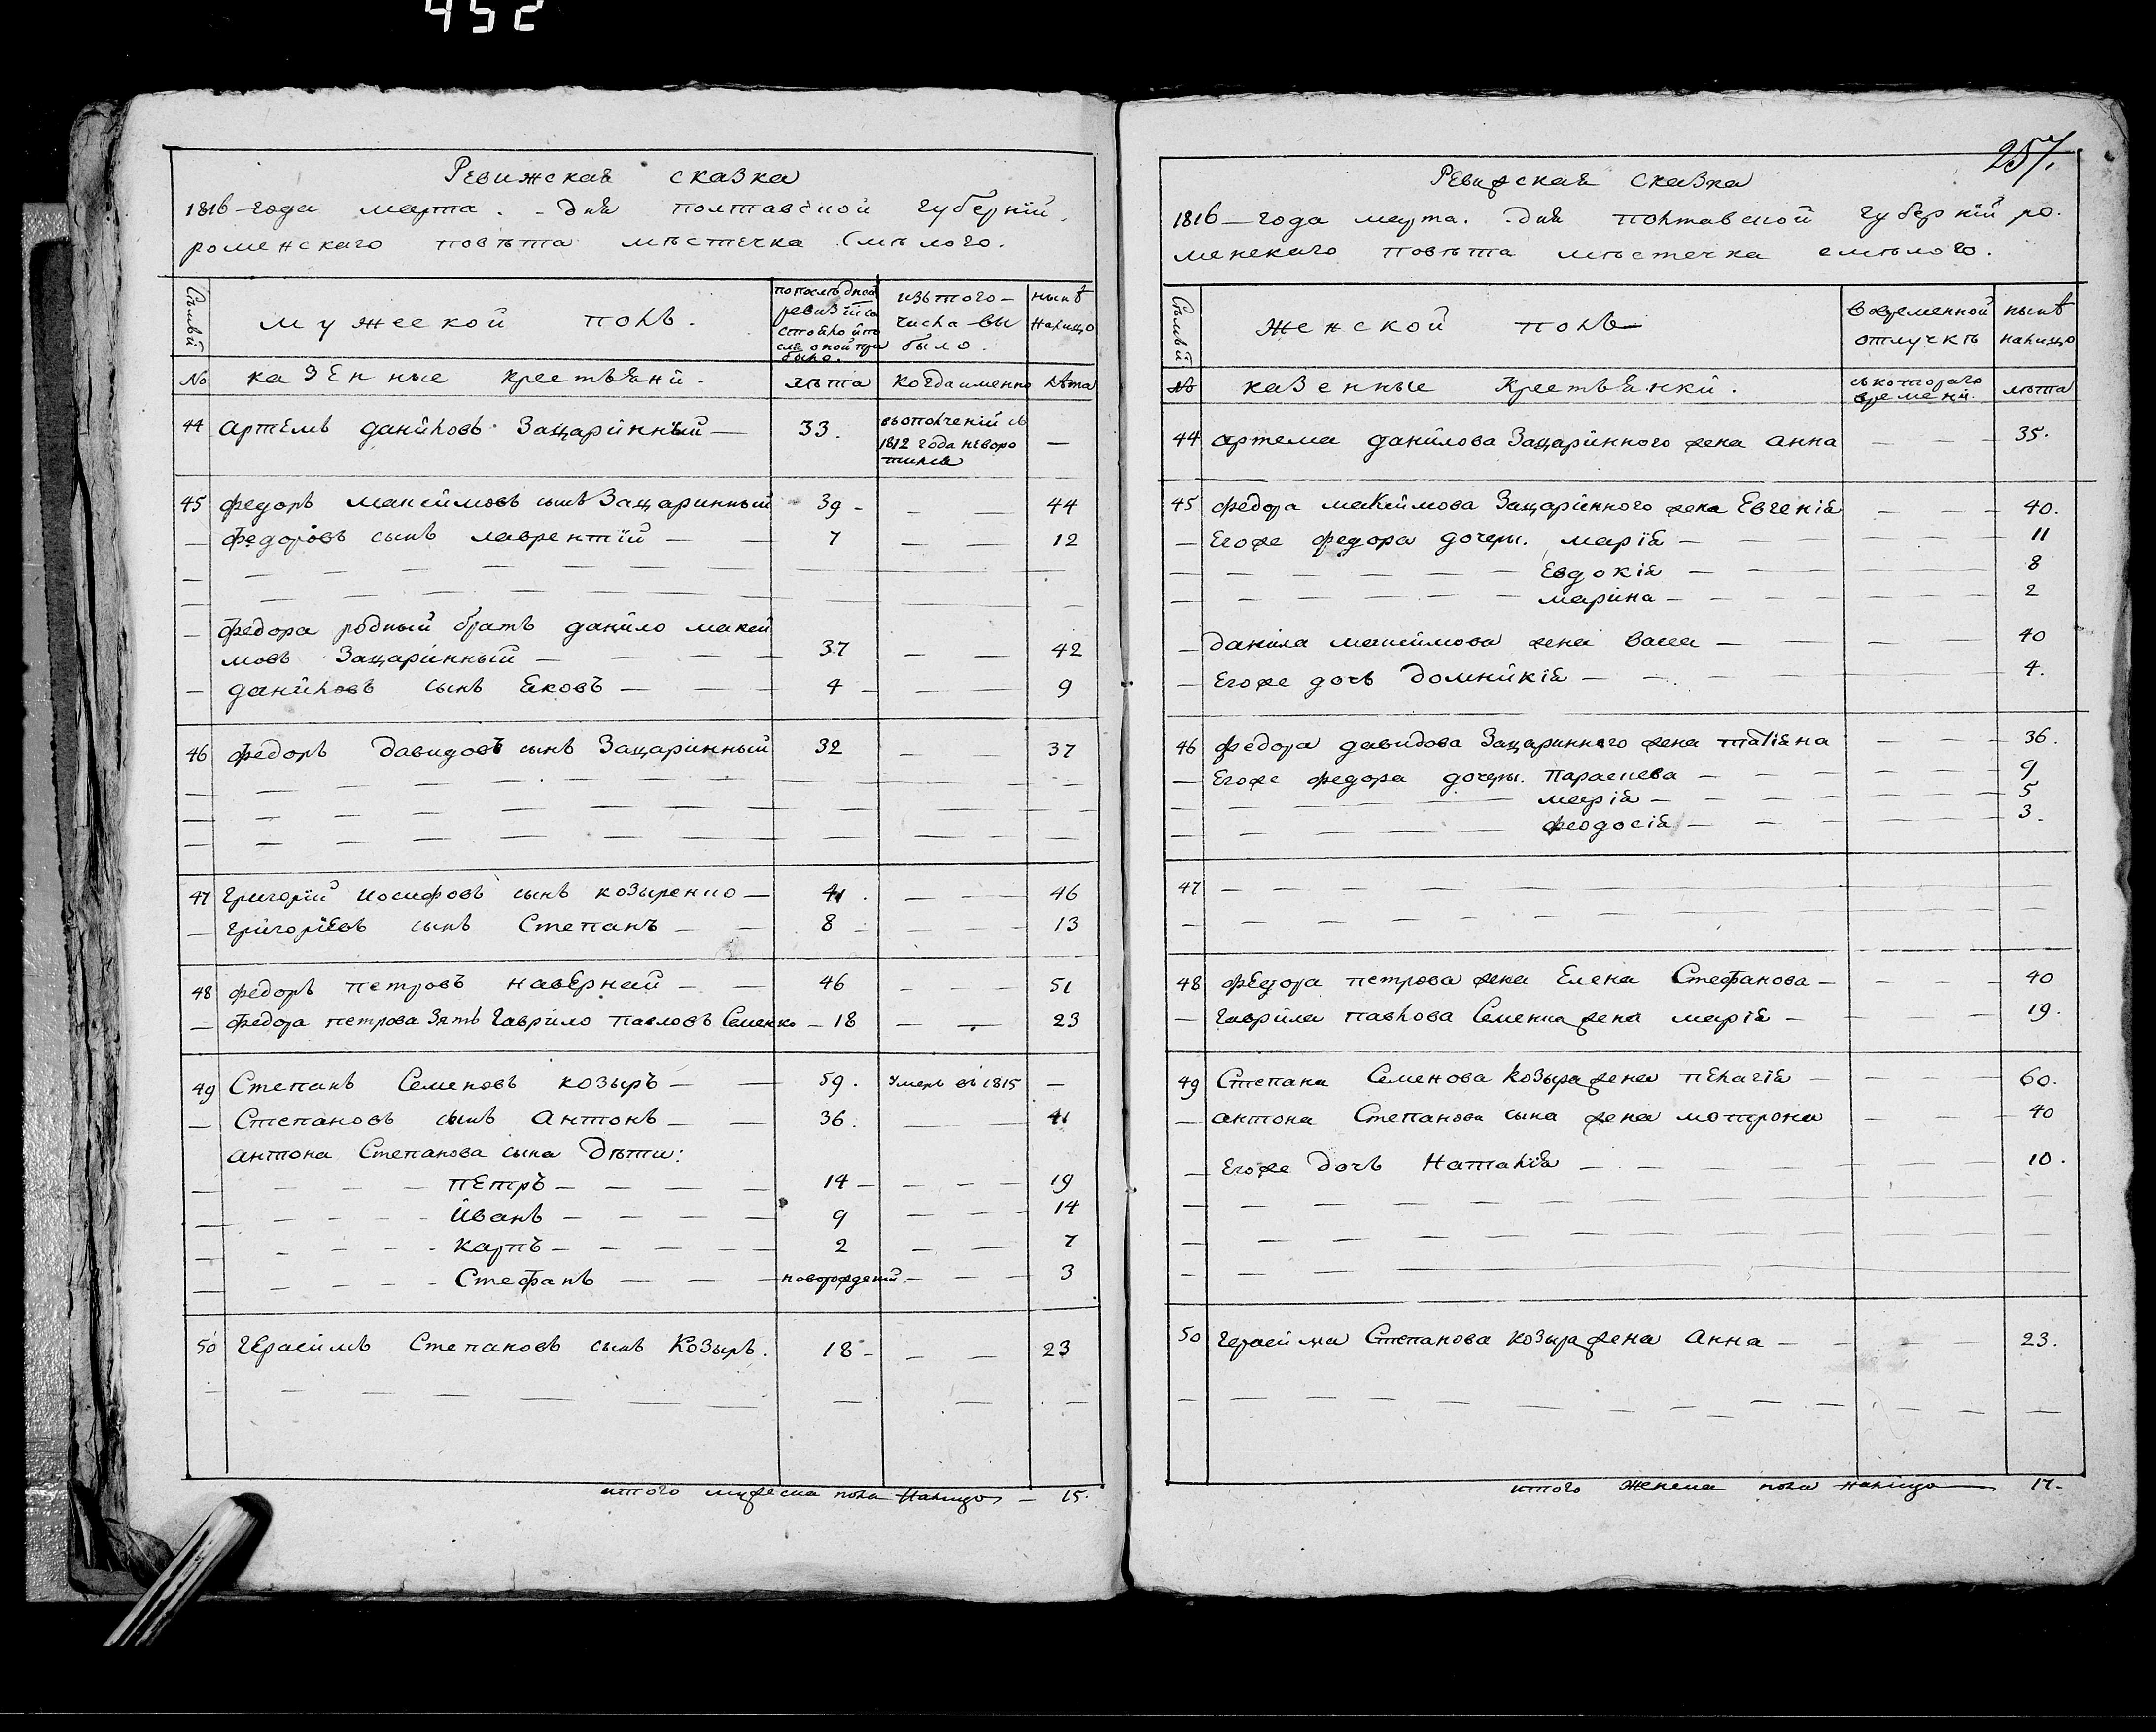 452
Ревижская сказка
1816-года марта. - дня полтавской губерніи
роменскаго повѣта мѣстечка Смѣлого.
Семьи
мужеской полъ.
по последней ревизіи со
стояло и по
сле оной при
было.
изъ того-
числа вы
было.
нынѣ
налицо
№ казенные крестьяни. лѣта когда именно лѣта
44 артемъ данйловъ Защаринный — 33. въ ополченій съ
1812 года не воро
тился —
45 федоръ максимовъ сынъ Защаринный 39 - — — 44
— федоровъ сынъ лаврентій — — 7 — — 12
— федора родный братъ данило макси
мовъ Защаринный — 37 — — 42
— данйловъ сынъ яковъ — 4 — 9
46 федоръ давидовъ сынъ Защаринный 32 — — 37
47 григорій иосифовъ сынъ козыренко — 41 . — — 46
— григоріевъ сынъ Степанъ — — 8 - — — 13
48 федоръ петровъ наверний — — 46 - — — 51
— федора петрова зять гаврило павловъ Семенко — 18 — — 23
49 Степанъ Семеновъ козыръ — — 59. умеръ въ 1815 —
— Степановъ сынъ Антонъ — — 36. — 41
антона Степанова сына дѣти:
— петръ — 14 — 19
— йванъ — 9 — 14
— карпъ — 2 — 7
— Стефанъ — новорожденій — 3
50 герасимъ Степановъ сынъ Козыръ. 18 - — — 23
итого мужеска пола налицо — 15.
257.
Ревижская сказка
1816 — года марта. дня полтавской губерній ро.
менскаго повѣта мѣстечка смѣлого.
Семьи
женской полъ
во временной
отлучкѣ
нынѣ
налицо
№ казенные крестьянки. съ котораго
времени. лѣта
44 артема данилова Защаринного жена анна — — — 35.
45 федора максимова Защаринного жена Евгенія — — — 40.
— Егоже федора дочери. марія — 11
— Евдокія — 8
— марина — 2
— данила максимова жена васса — 40
— Егоже дочь домникія — 4.
46 федора давидова Защаринного жена татіана — — — 36.
— Егоже федора дочери. параскева — 9
— марія — 5
— феодосія — 3.
47 — — —
48 федора петрова жена Елена Стефанова — 40
— гаврила павлова Семенка жена марія — 19.
49 Степана Семенова козыра жена пелагія — 60.
— антона Степанова сына жена мотрона — 40
— Егоже дочь Наталія — 10.
50 герасима Степанова козыра жена Анна — 23.
итого женска пола налицо — 17.